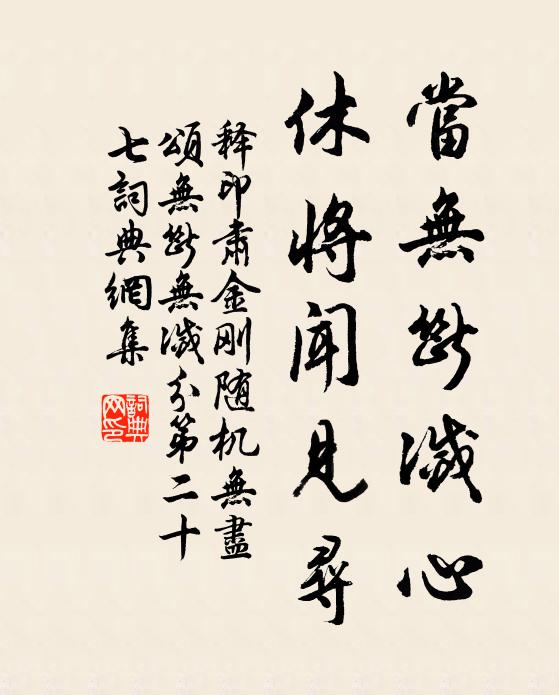 當無斷滅心
休將聞見尋
释印肃金刚随机無盡
頌無斷無滅分第二十
七詞典網集
詞典
网印